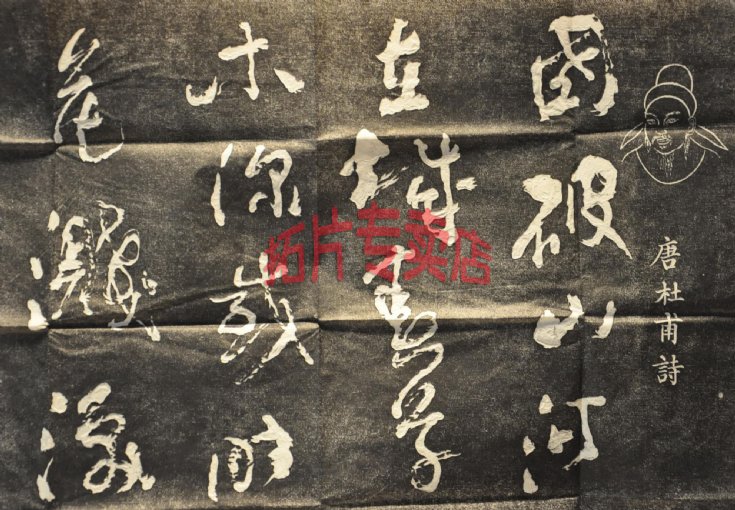 唐杜甫詩
國破山河
在城春草
木深感時
花濺淚
拓片专卖店